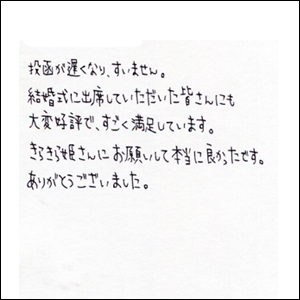 投函が遅くなり、すいません。
結婚式に出席していただいた皆さんにも
大変好評で、すごく満足しています。
きらきら姫さんにお願いして本当に良かったです。
ありがとうございました。